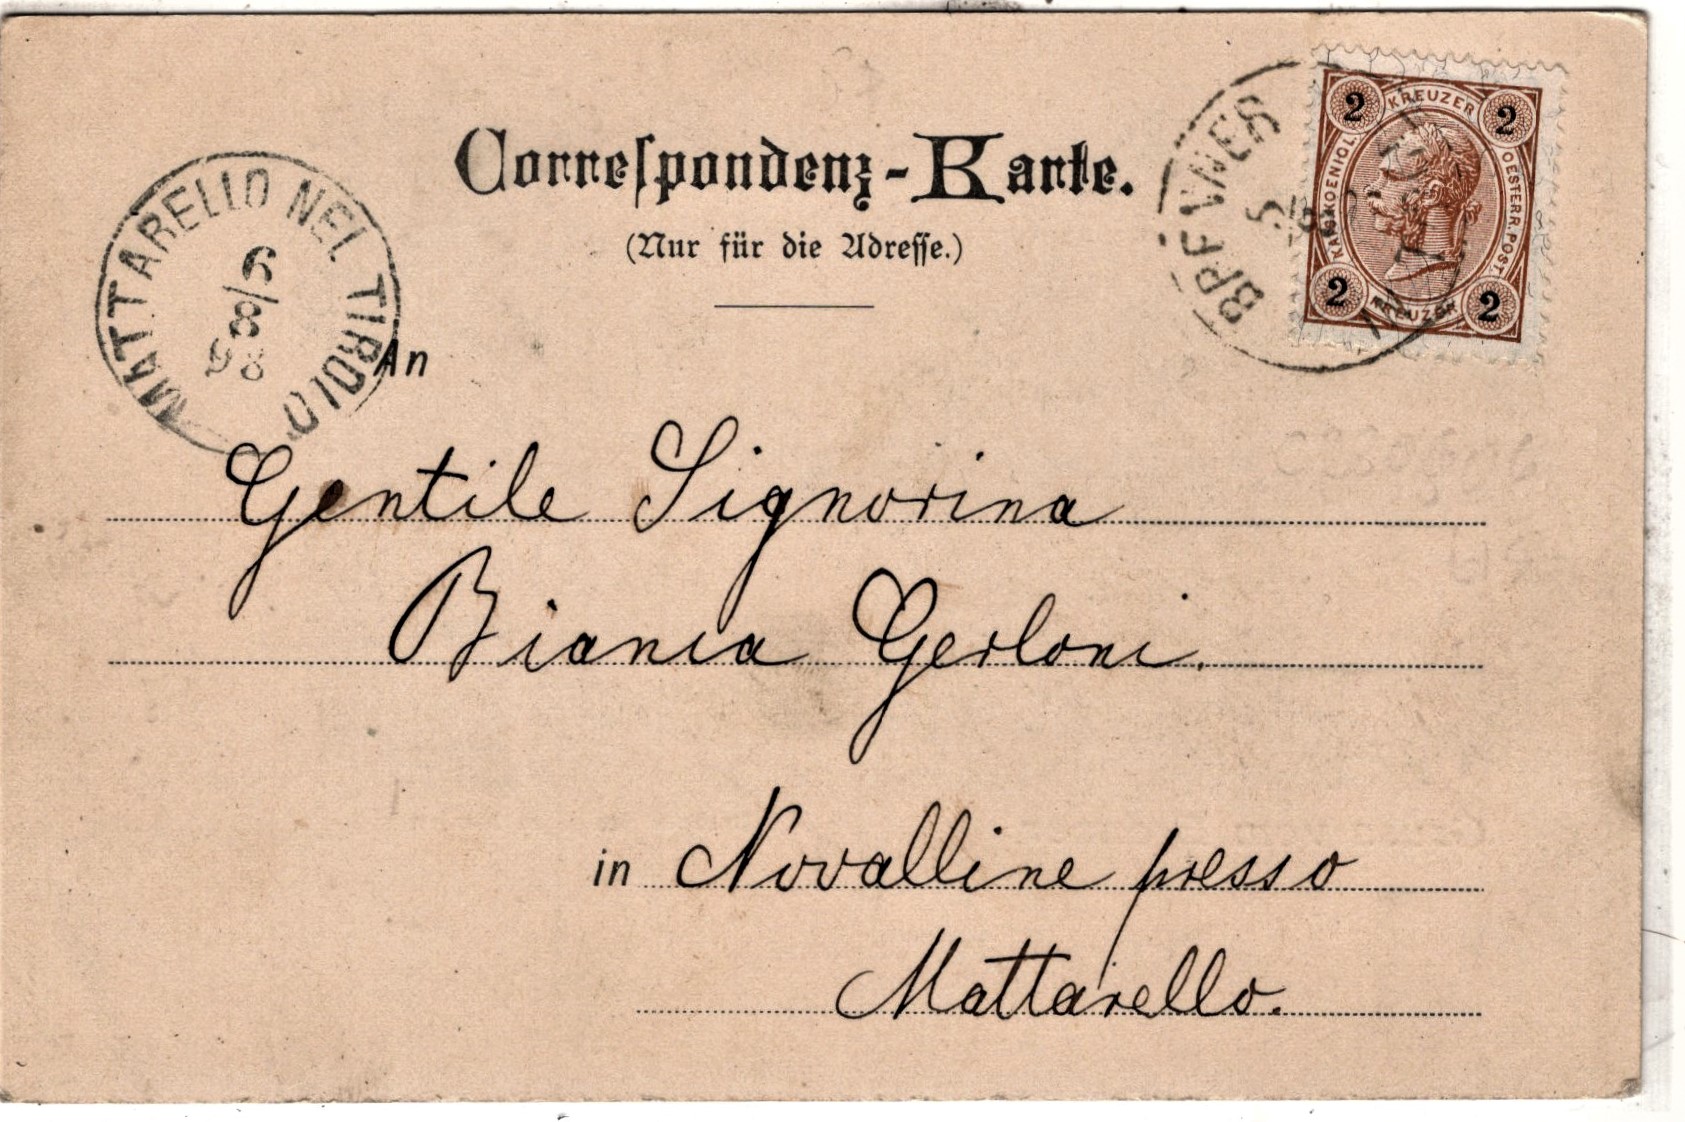 Correspondenz-Karte.
(Nur für die Adresse.)
MATTARELLO NEL TIROLO
6/8
98
2 KREUZER 2
KAIS. KOENIGL. OESTERR. POST.
2 KREUZER 2
An
Gentile Signorina
Bianca Gerloni.
in Novalline presso
Mattarello.